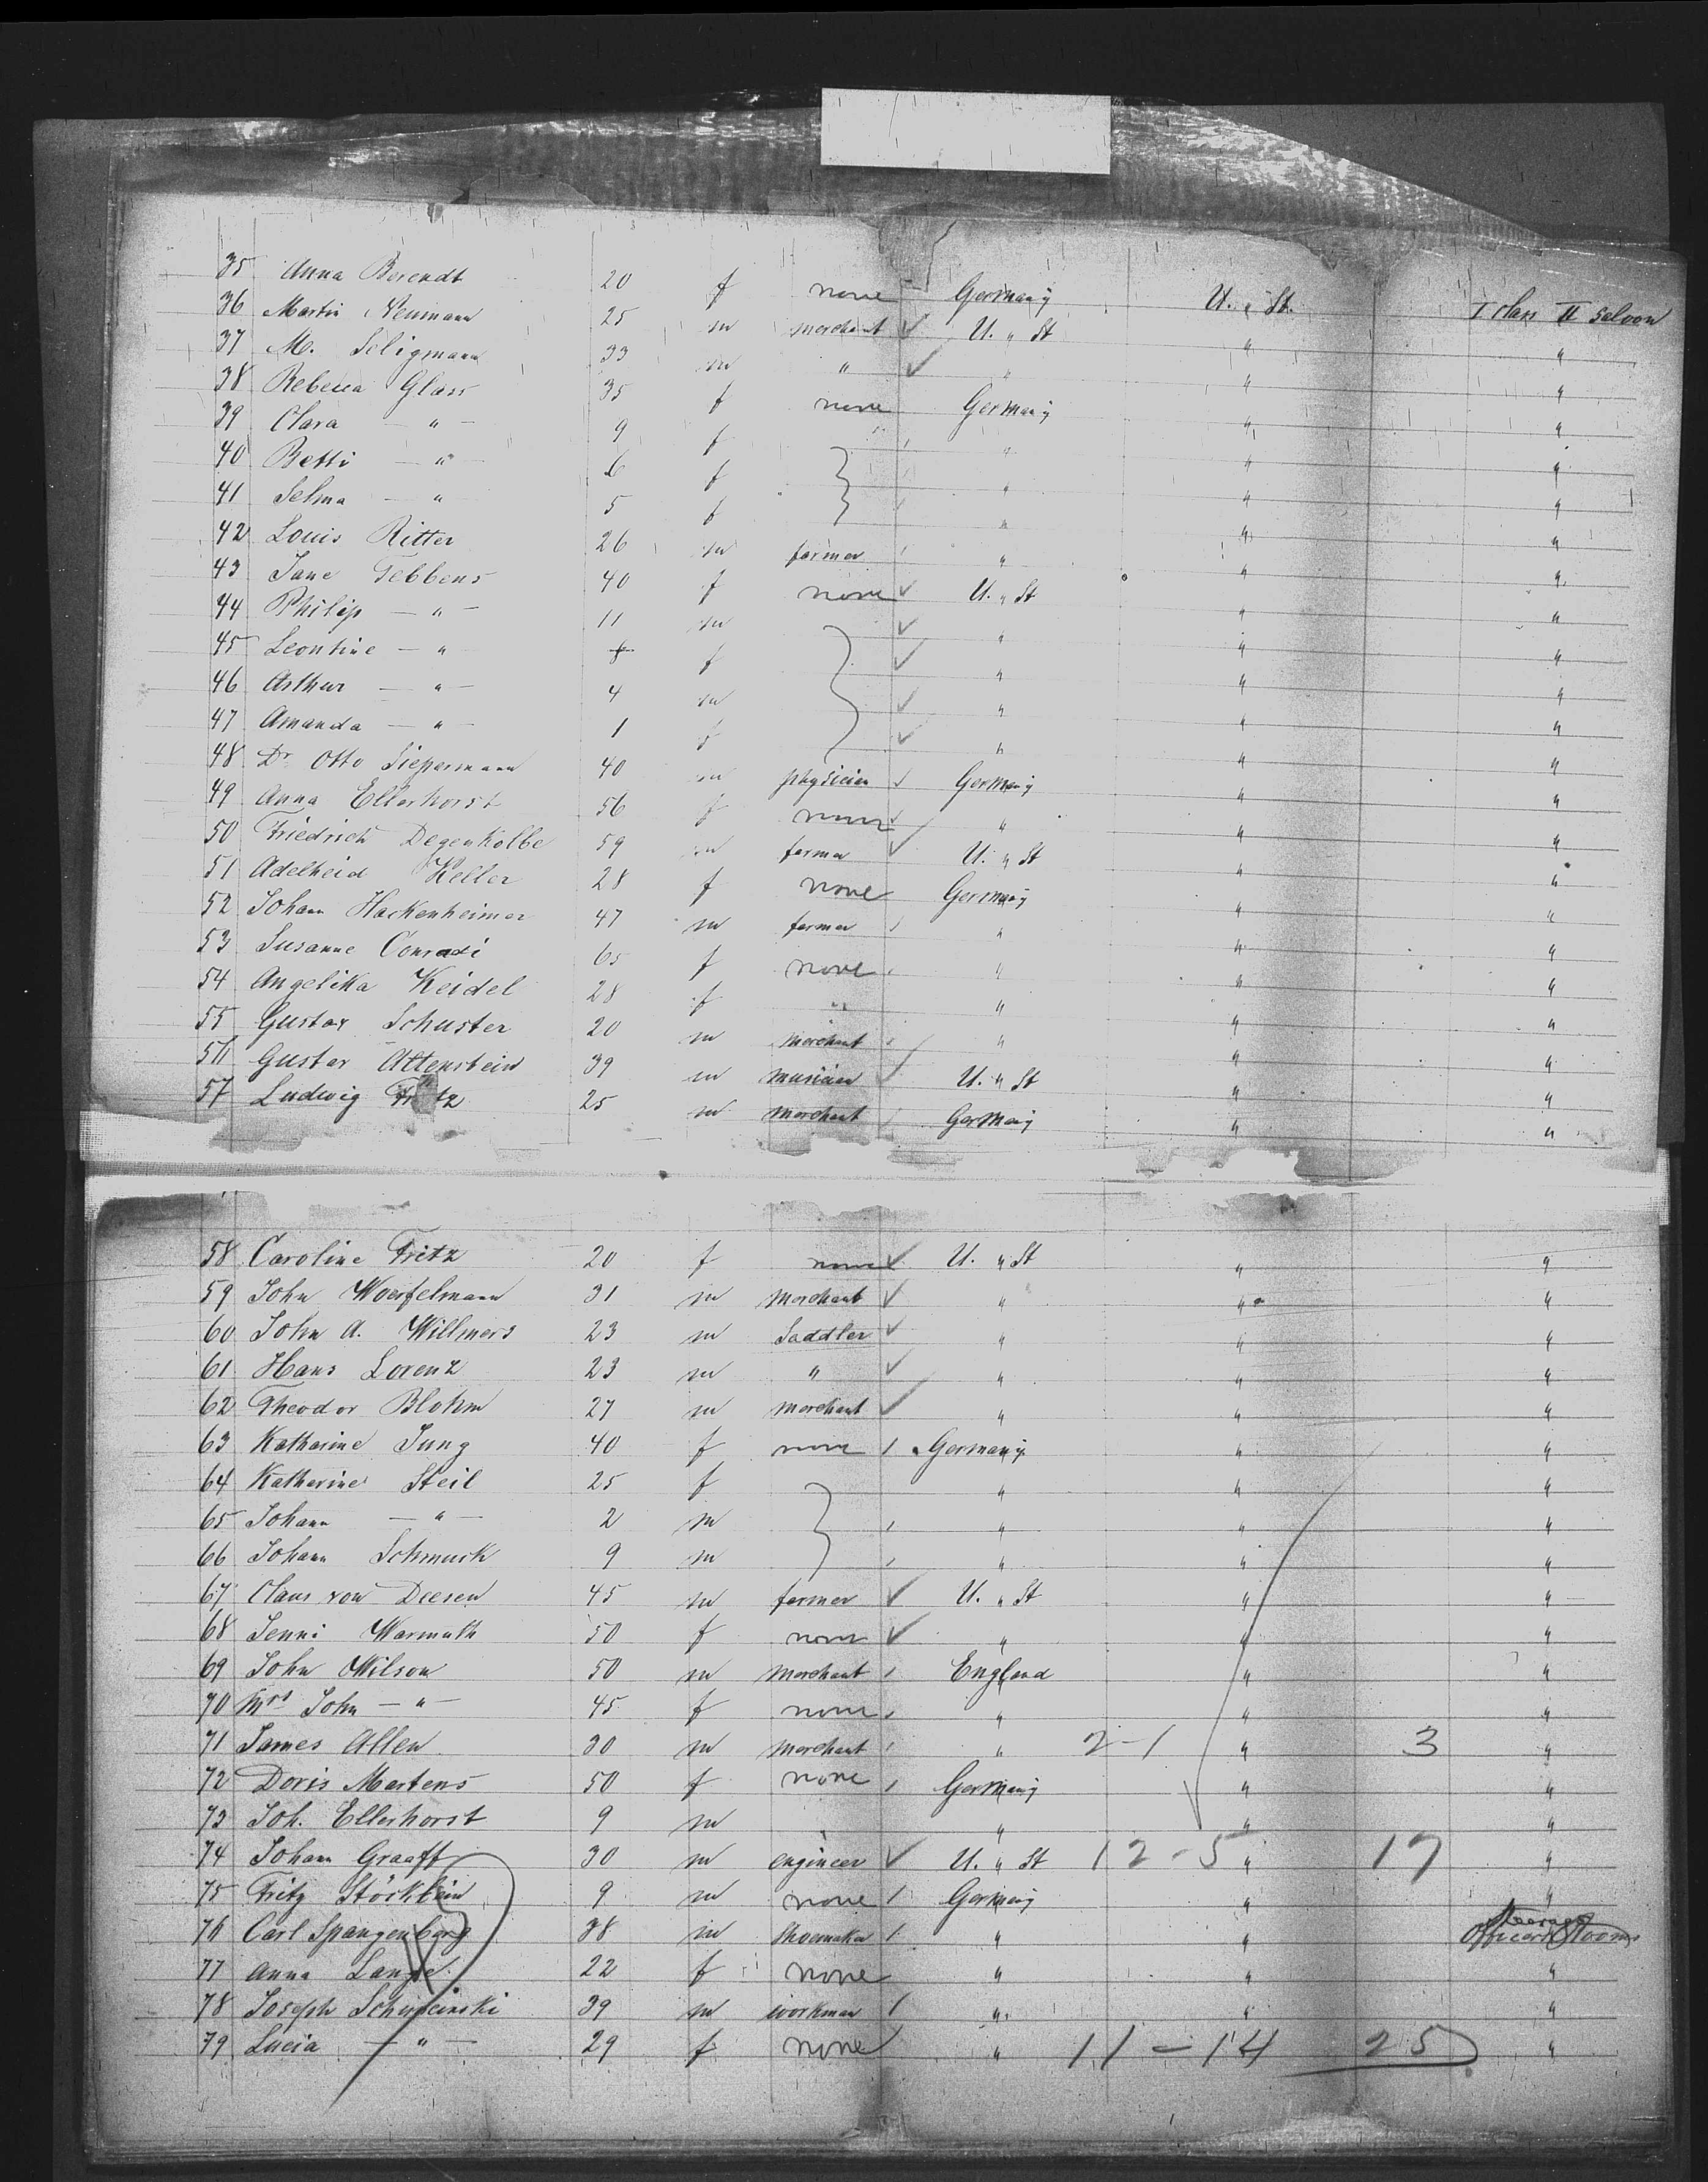 35 Anna Berendt 20 f none Germany U. " St. I class II Saloon
36 Martin Neumann 25 m merchant U. " St " "
37 M. Seligmann 33 m " " " "
38 Rebecca Glass 35 f none Germany " "
39 Clara — " — 9 f " " "
40 Betti — " — 6 f " " "
41 Selma — " 5 f " " "
42 Louis Ritter 26 m farmer " " "
43 Jane Tebbens 40 f none U. " St " "
44 Philip — " — 11 m " " "
45 Leontine — " f " " "
46 Arthur — " — 4 m " " "
47 Amanda — " — 1 f " " "
48 Dr Otto Siepermann 40 m physician Germany " "
49 Anna Ellerhorst 56 f none " " "
50 Friedrich Degenkolbe 59 m farmer U. " St " "
51 Adelheid Keller 28 f none Germany " "
52 Johann Hackenheimer 47 m farmer " " "
53 Susanne Conradi 65 f none " " "
54 Angelika Keidel 28 f " " " "
55 Gustav Schuster 20 m merchant " " "
56 Gustav Attenstein 39 m musician U. " St " "
57 Ludwig 25 m merchant Germany " "
58 Caroline Fritz 20 f none U. " St " "
59 John Woerfelmann 31 m merchant " " "
60 John A. Willmers 23 m Saddler " " "
61 Hans Lorenz 23 m " " " "
62 Theodor Blohm 27 m merchant " " "
63 Katharine Jung 40 f none Germany " "
64 Katharine Steil 25 f " " "
65 Johann — " — 2 m " " "
66 Johann Schmuck 9 m " " "
67 Claus von Deesen 45 m farmer U. " St " "
68 Jenni Warmuth 50 f none " " "
69 John Wilson 50 m merchant England " "
70 Mrs John — " — 45 f none " " "
71 James Allen 30 m merchant " 2-1 " 3 "
72 Doris Martens 50 f none Germany " "
73 Joh. Ellerhorst 9 m " " " "
74 Johann Graaff 30 m engineer U. " St 12-5 " 17 "
75 Fritz Stöcklein 9 m none Germany " "
76 Carl Spangenberg 38 m Shoemaker " " Steerage Officers Rooms
77 Anna Lange 22 f none " " "
78 Joseph 39 m workman " " "
79 Lucia — " — 29 f none " 11-14 25 "